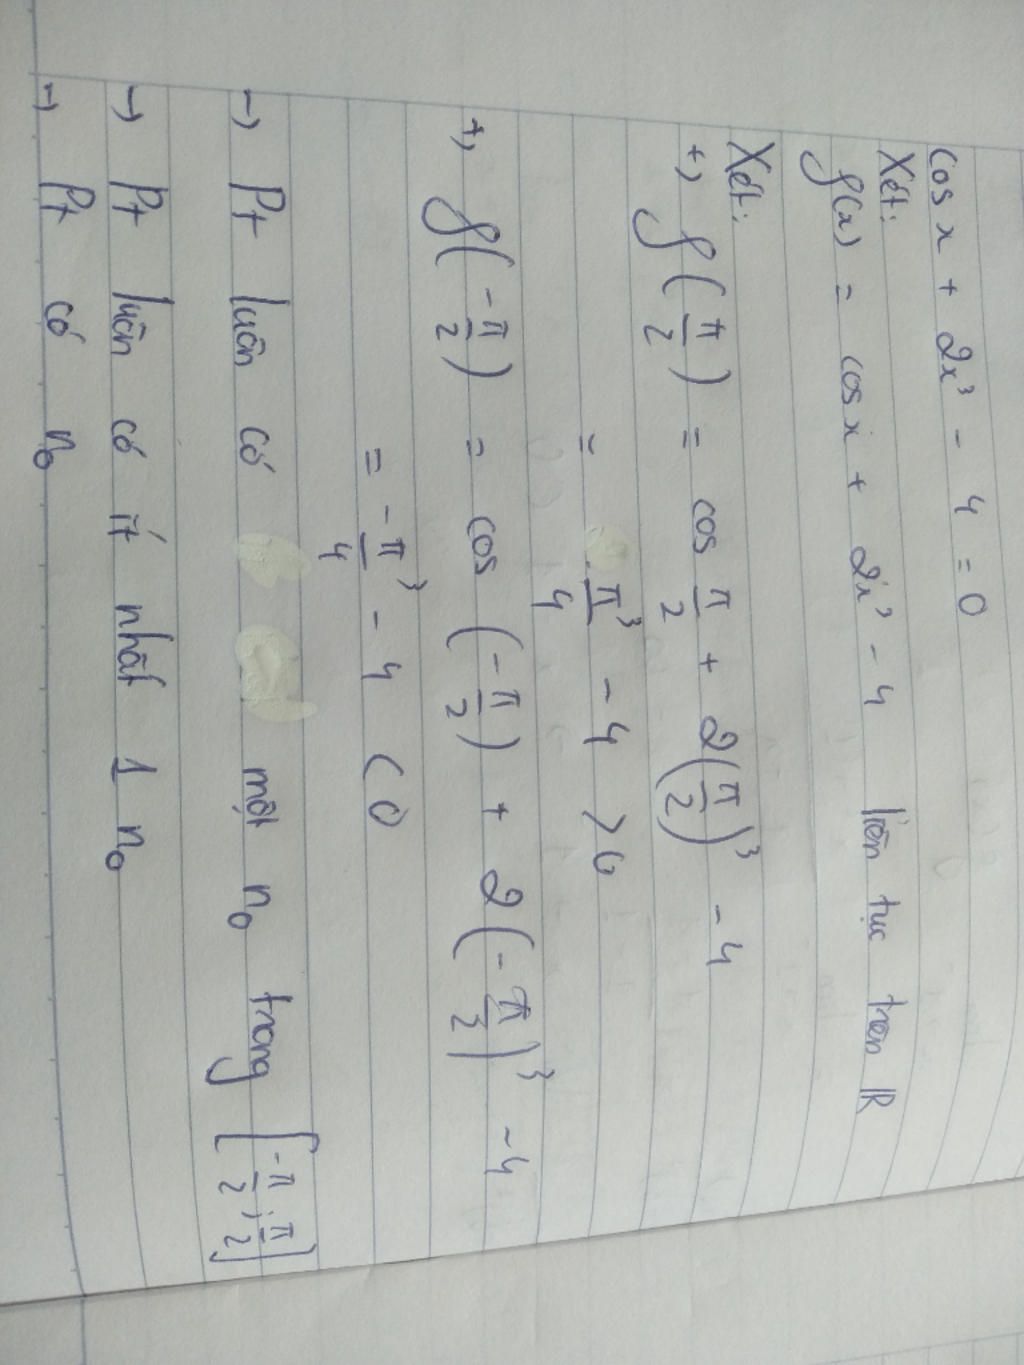 cos x + 2x³ - 4 = 0
Xét:
f(x) = cos x + 2x³ - 4 liên tục trên ℝ
Xét:
+, f(π/2) = cos π/2 + 2(π/2)³ - 4
= π³/4 - 4 > 0
+, f(-π/2) = cos (-π/2) + 2(-π/2)³ - 4
= -π³/4 - 4 < 0
→ Pt luôn có một n₀ trong [-π/2; π/2]
→ Pt luôn có ít nhất 1 n₀
→ Pt có n₀